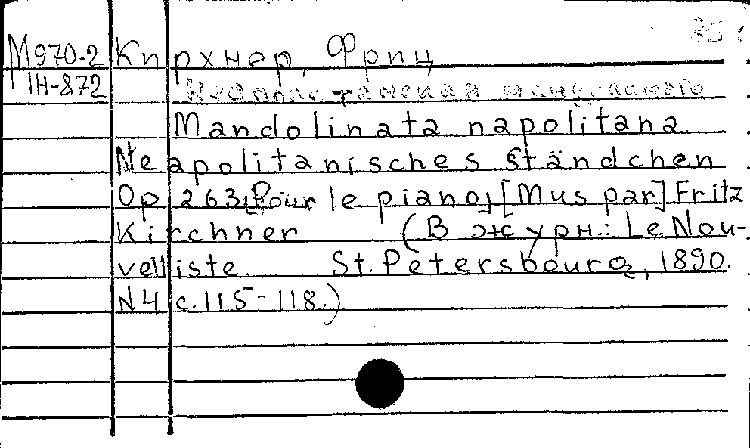 М970-2 Кирхнер, Фриц
IH-872
Mandolinata napolitana
Neapolitanisches Ständchen
Op 263, Pour le piano, [Mus par] Fritz
Kirchner (В журн.: Le Nou-
velliste St. Pétersbourg, 1890.
N4 с. 115-118.)